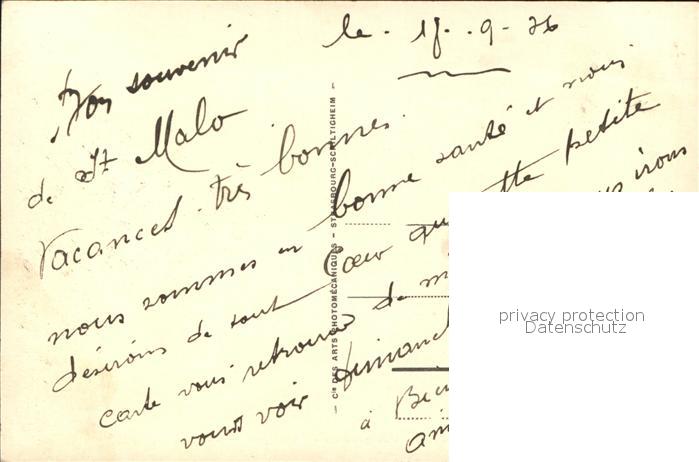 le. 17. .9 - 36
Bon souvenir
de St Malo
Vacances. très bonnes.
nous sommes en bonne santé et nous
désirons de tout Coeur que cette petite
carte vous retrouve de m
irons
vous voir Dimanch
à
Cie DES ARTS PHOTOMÉCANIQUES - STRASBOURG-SCHILTIGHEIM -
privacy protection
Datenschutz